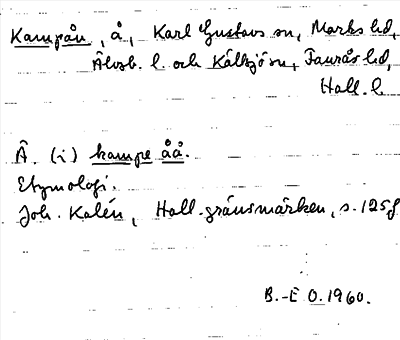 Kampån, å, Karl Gustavs sn, Marks hd,
Älvsb. l. och Källsjö sn, Faurås hd,
Hall. l.
Å. (i) kampe åå.
Etymologi.
Joh. Kalén, Hall. gränsmärken, s. 125f
B.-E O. 1960.